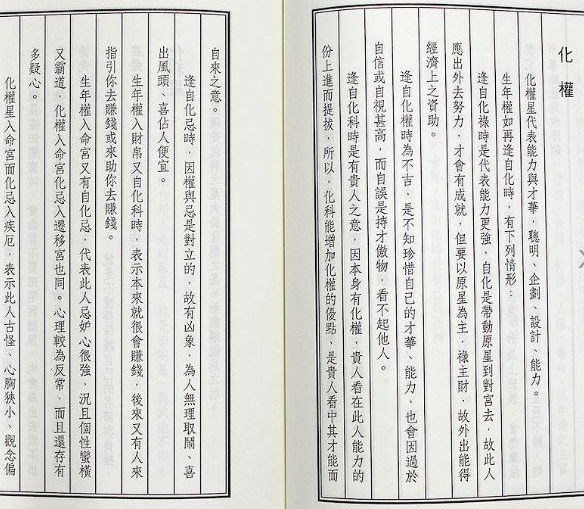 化權
化權星代表能力與才華，聰明、企劃、設計、能力。
生年權如再逢自化時，有下列情形：
逢自化祿時是代表能力更強，自化是帶動原星到對宮去，故此人
應出外去努力，才會有成就，但要以原星為主，祿主財，故外出能得
經濟上之資助。
逢自化權時為不吉，是不知珍惜自己的才華、能力，也會因過於
自信或自視甚高，而自誤是持才傲物，看不起他人。
逢自化科時是有貴人之意，因本身有化權，貴人看在此人能力的
份上進而提拔，所以，化科能增加化權的優點，是貴人看中其才能而
自來之意。
逢自化忌時，因權與忌是對立的，故有凶象，為人無理取鬧、喜
出風頭、喜佔人便宜。
生年權入財帛又自化科時，表示本來就很會賺錢，後來又有人來
指引你去賺錢或來助你去賺錢。
生年權入命宮又有自化忌，代表此人忌妒心很強，況且個性蠻橫
又霸道，化權入命宮化忌入遷移宮也同。心理較為反常，而且還存有
多疑心。
化權星入命宮而化忌入疾厄，表示此人古怪、心胸狹小、觀念偏